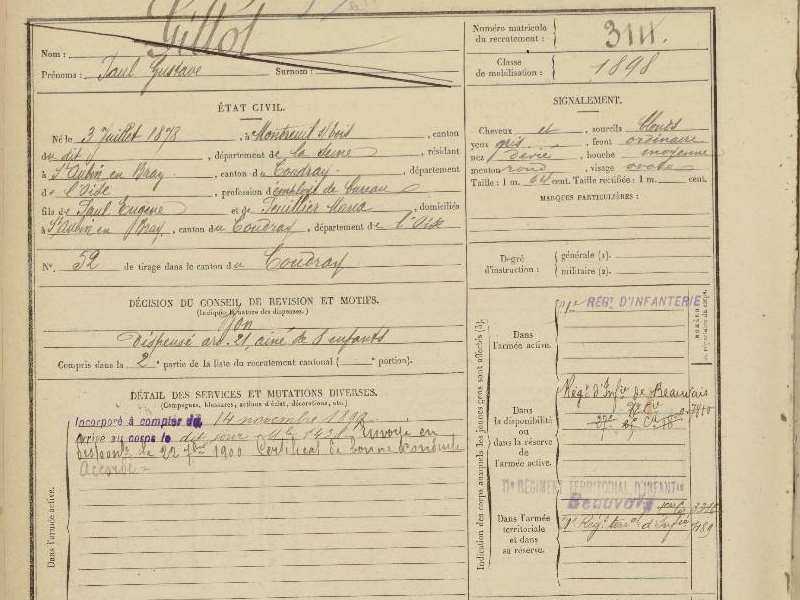 Gillot
Nom :
Prénoms : Paul Gustave Surnom :
Numéro matricule du recrutement : 3111.
Classe de mobilisation : 1898
ÉTAT CIVIL.
Né le 3 Juillet 1878, à Montreuil s/bois, canton
du dit, département de la Seine, résidant
à St Aubin en Bray, canton du Coudray, département
de l'Oise, profession d'employé de bureau
fils de Paul Eugène et de Maria, domiciliés
à St Aubin en Bray, canton du Coudray, département de l'Oise
N° 52 de tirage dans le canton du Coudray
SIGNALEMENT.
Cheveux et sourcils blonds
yeux gris, front ordinaire
nez, bouche moyenne
menton rond, visage ovale
Taille : 1 m. 64 cent. Taille rectifiée : 1 m. cent.
MARQUES PARTICULIÈRES :
Degré d'instruction : générale (1).
militaire (2).
DÉCISION DU CONSEIL DE REVISION ET MOTIFS.
(Indiquer la nature des dispenses.)
Bon
Dispensé art. 21, aîné de 8 enfants
Compris dans la 2e partie de la liste du recrutement cantonal ( portion).
DÉTAIL DES SERVICES ET MUTATIONS DIVERSES.
(Campagnes, blessures, actions d'éclat, décorations, etc.)
Incorporé à compter du 14 novembre 1899
arrivé au corps le dit jour Renvoyé en
dispon. le 22 7bre 1900 Certificat de bonne conduite
Accordé
Dans l'armée active.
Indication des corps auxquels les jeunes gens sont affectés (3).
Dans l'armée active.
RÉGt D'INFANTERIE
Dans la disponibilité ou dans la réserve de l'armée active.
Régt d'Infie de Beauvais
Dans l'armée territoriale et dans sa réserve.
RÉGIMENT TERRITORIAL D'INFANTie
Beauvais
Régt terral d'Infie